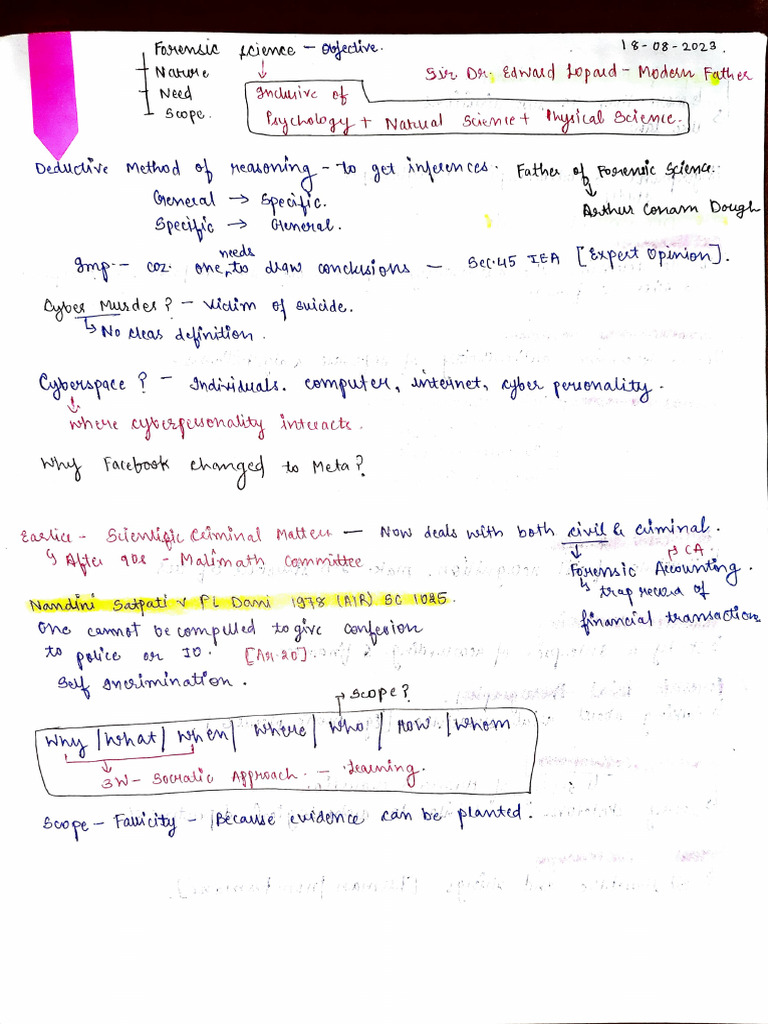 Forensic Science – Objective.
18-08-2023.
Nature
Need
Scope.
Sir Dr. Edward Lopard – Modern Father
Inclusive of
Psychology + Natural Science + Physical Science.
Deductive Method of reasoning – to get inferences.
Father of Forensic Science.
↳ Arthur Conam Dough
General → Specific.
Specific → General.
Imp – coz. one needs to draw conclusions – Sec.45 IEA [Expert Opinion].
Cyber Murder? – Victim of suicide.
↳ No clear definition.
Cyberspace? – Individuals. computer, internet, cyber personality.
↓
where cyberpersonality interacts.
Why Facebook changed to Meta?
Earlier – Scientific Criminal Matters — Now deals with both civil & criminal.
↳ After 90s – Malimath committee
→ CA.
Forensic Accounting.
↳ trap record of
financial transaction
Nandini Satpati v PL Dani 1978 (AIR) SC 1025.
One cannot be compelled to give confesion
to police or IO. [Ar.20]
Self Incrimination.
→ Scope?
Why | What | When | Where | Who | How. | Whom
3W – Socratic Approach – Learning.
Scope – Fallicity – Because evidence can be planted.